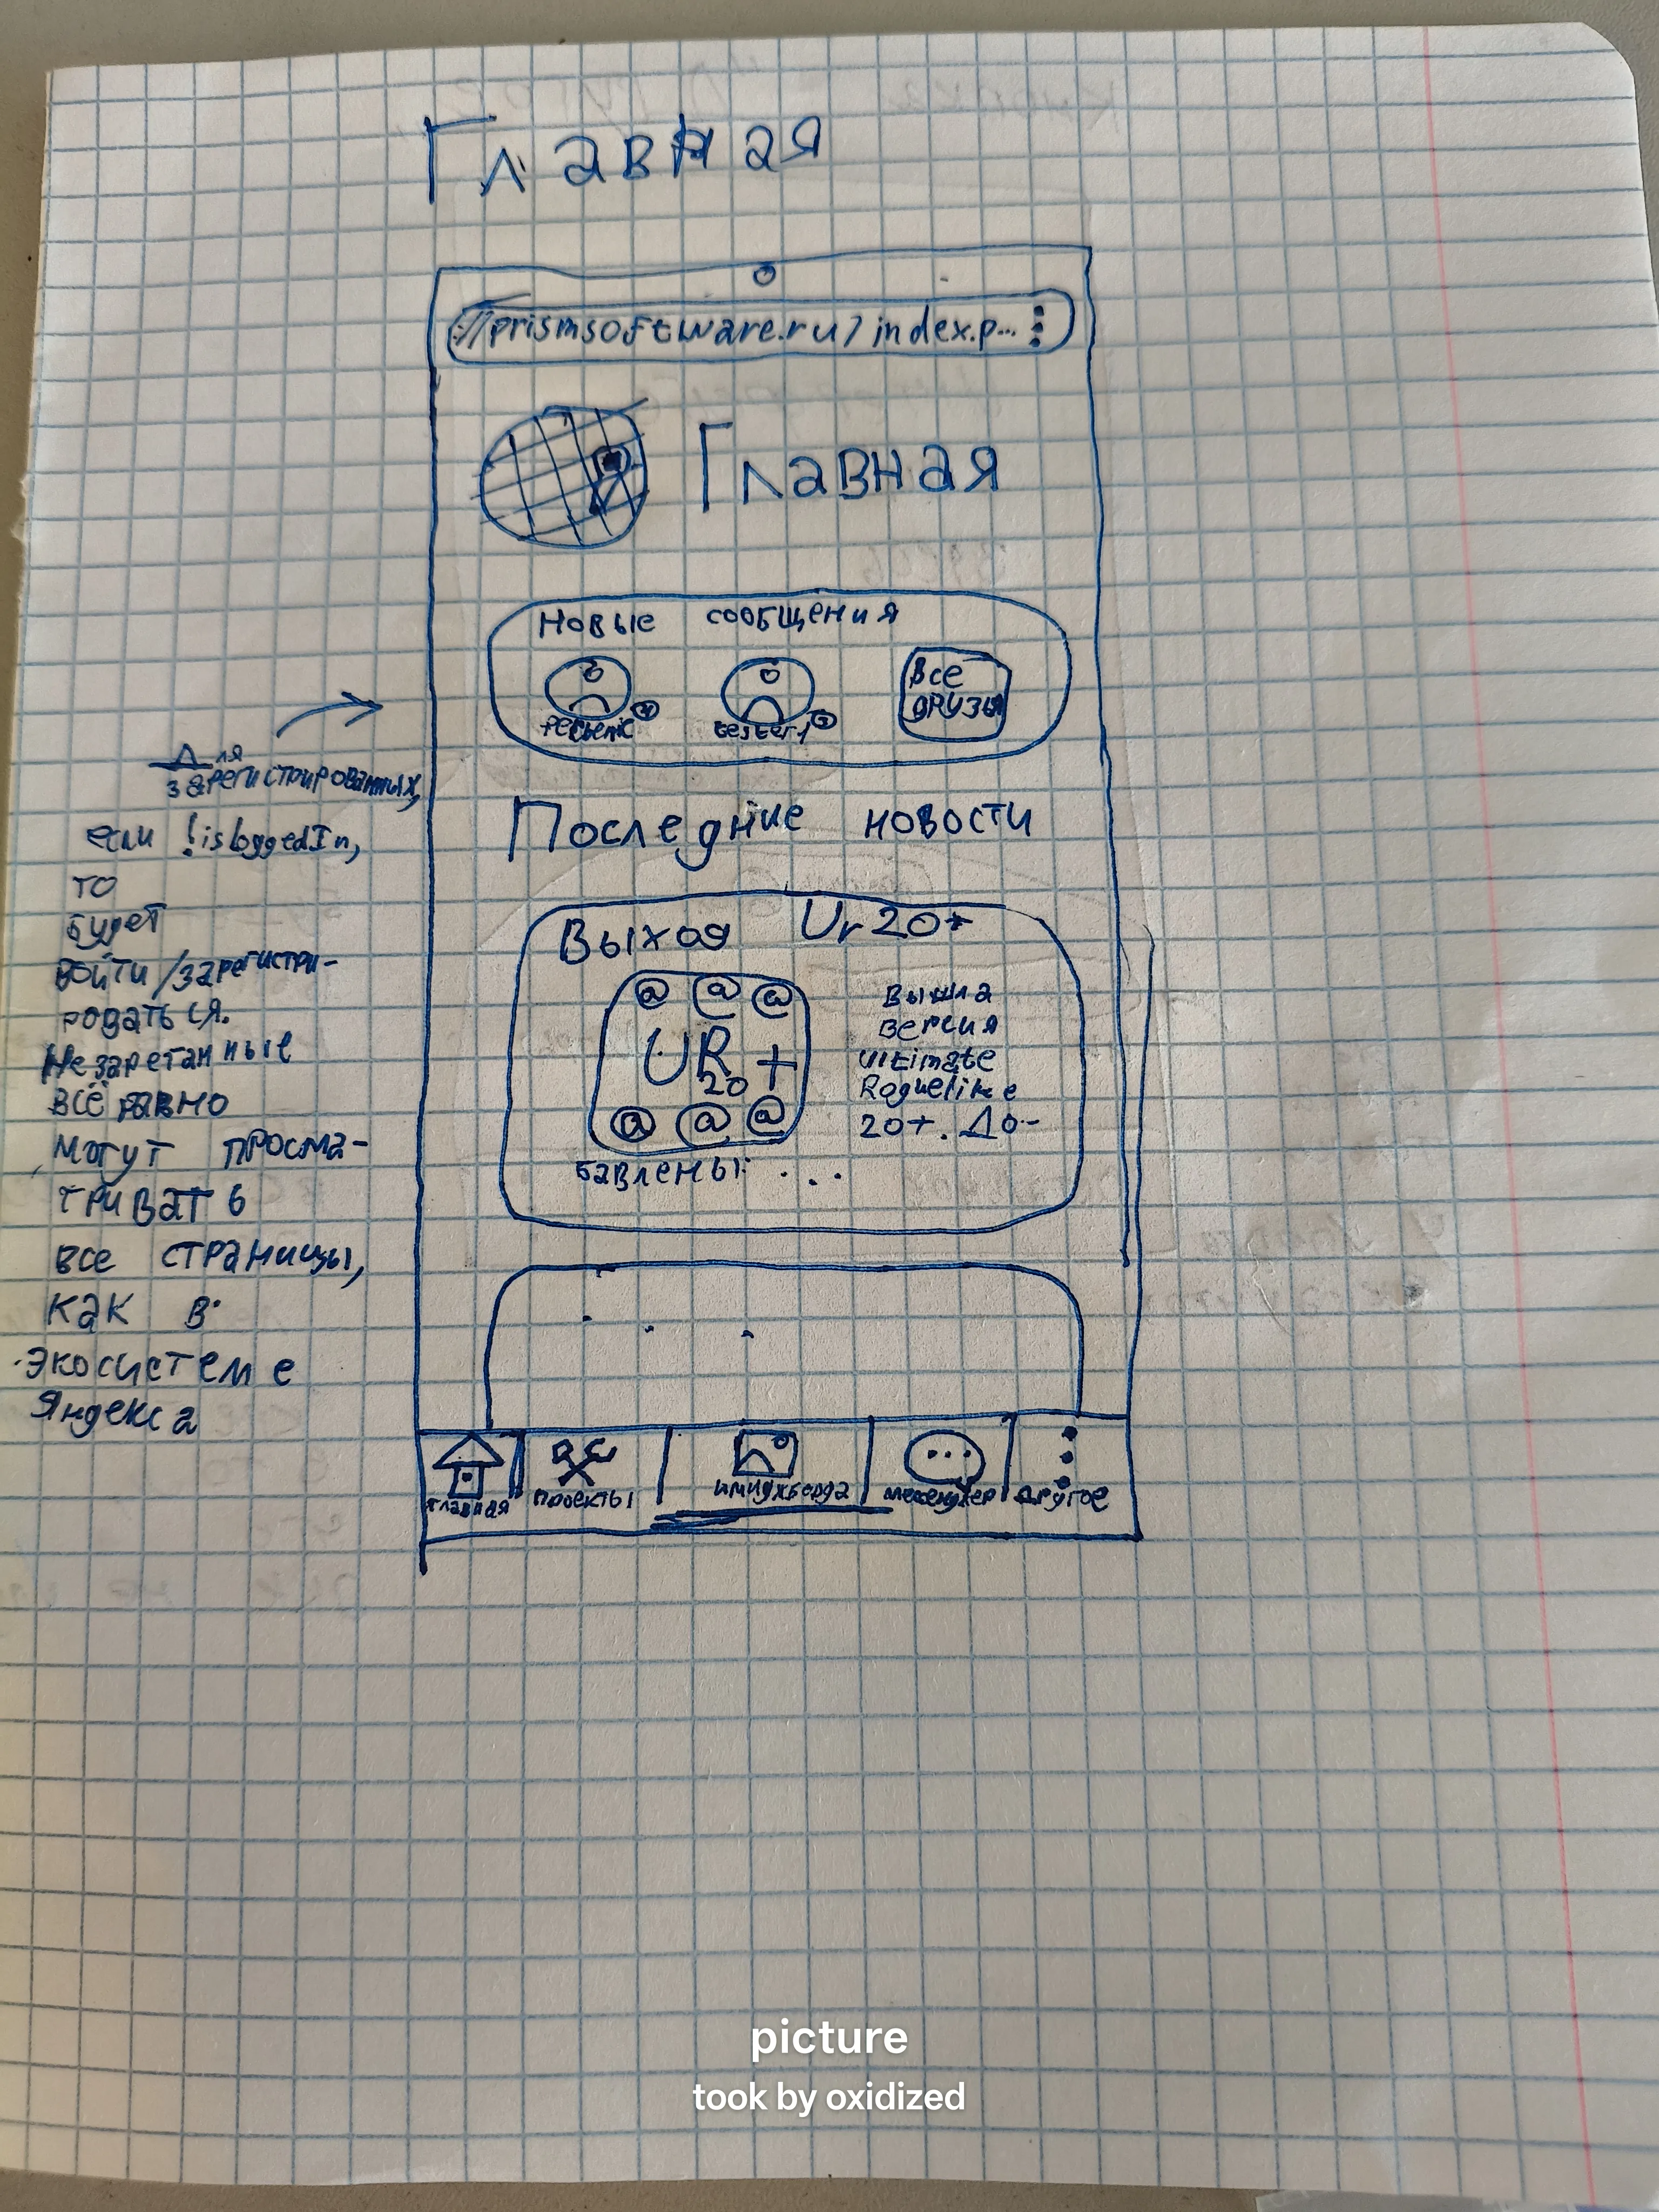 Главная
://prismsoftware.ru/index.p...
Главная
Новые сообщения
tester1
Все
друзья
Для
зарегистрированных,
если !isloggedIn,
то
будет
войти/зарегистри-
роваться.
Незареганные
всё равно
могут просма-
тривать
все страницы,
как в
экосистеме
Яндекса
Последние новости
Выход Ur20+
@ @ @
UR +
20
@ @ @
Вышла
версия
Ultimate
Roguelike
20+. До-
бавлены: ...
...
Главная
Проекты
имиджборда
мессенджер
Другое
picture
took by oxidized